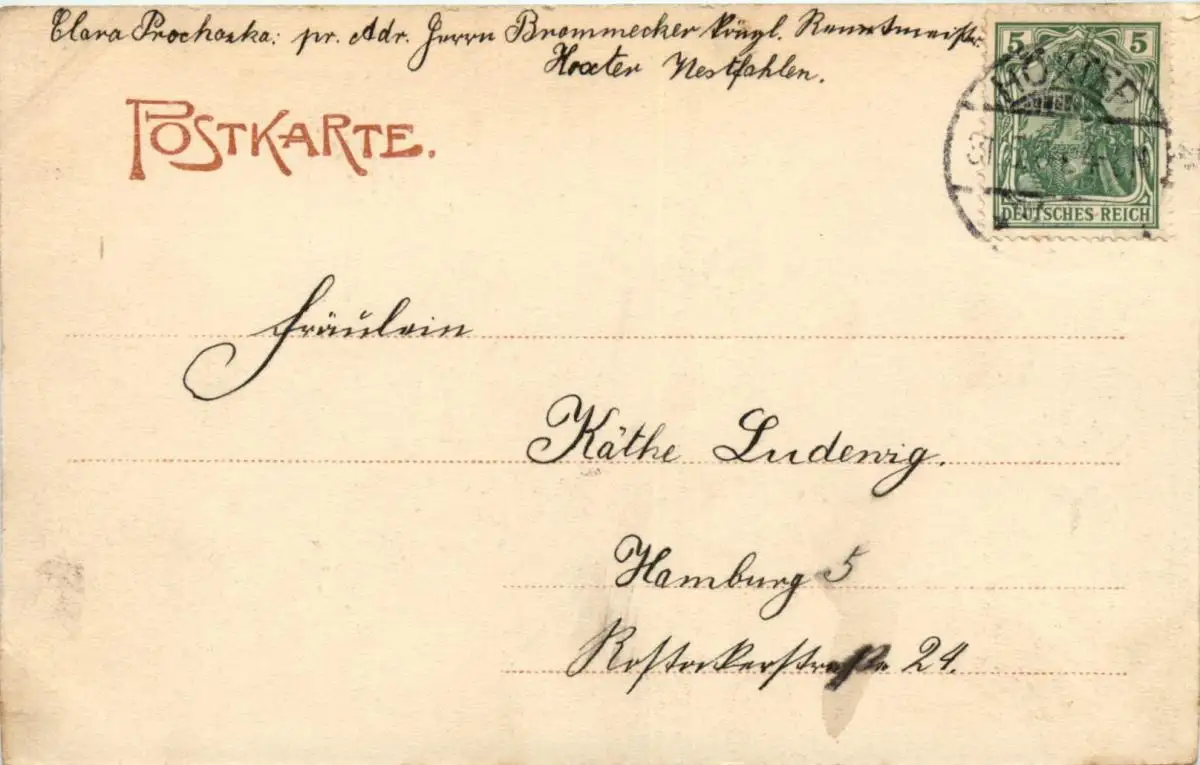 Clara Prochaska: pr. Adr. Herrn Brommecker königl. Renntmeister
Höxter Westfahlen.
POSTKARTE.
5 5
HÖXTER
DEUTSCHES REICH
Fräulein
Käthe Ludewig.
Hamburg 5
Rostockerstraße 24.